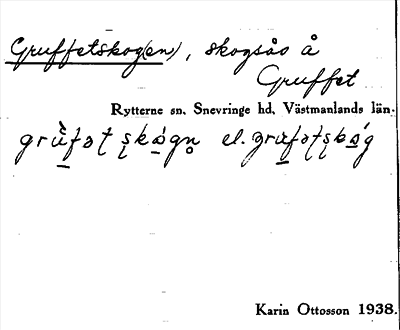 Gruffetskog(en), skogsås å
Gruffet
Rytterne sn. Snevringe hd. Västmanlands län.
grù̱fət ʂkó̱gn̥ el. grù̱fətʂkó̱g
Karin Ottosson 1938.